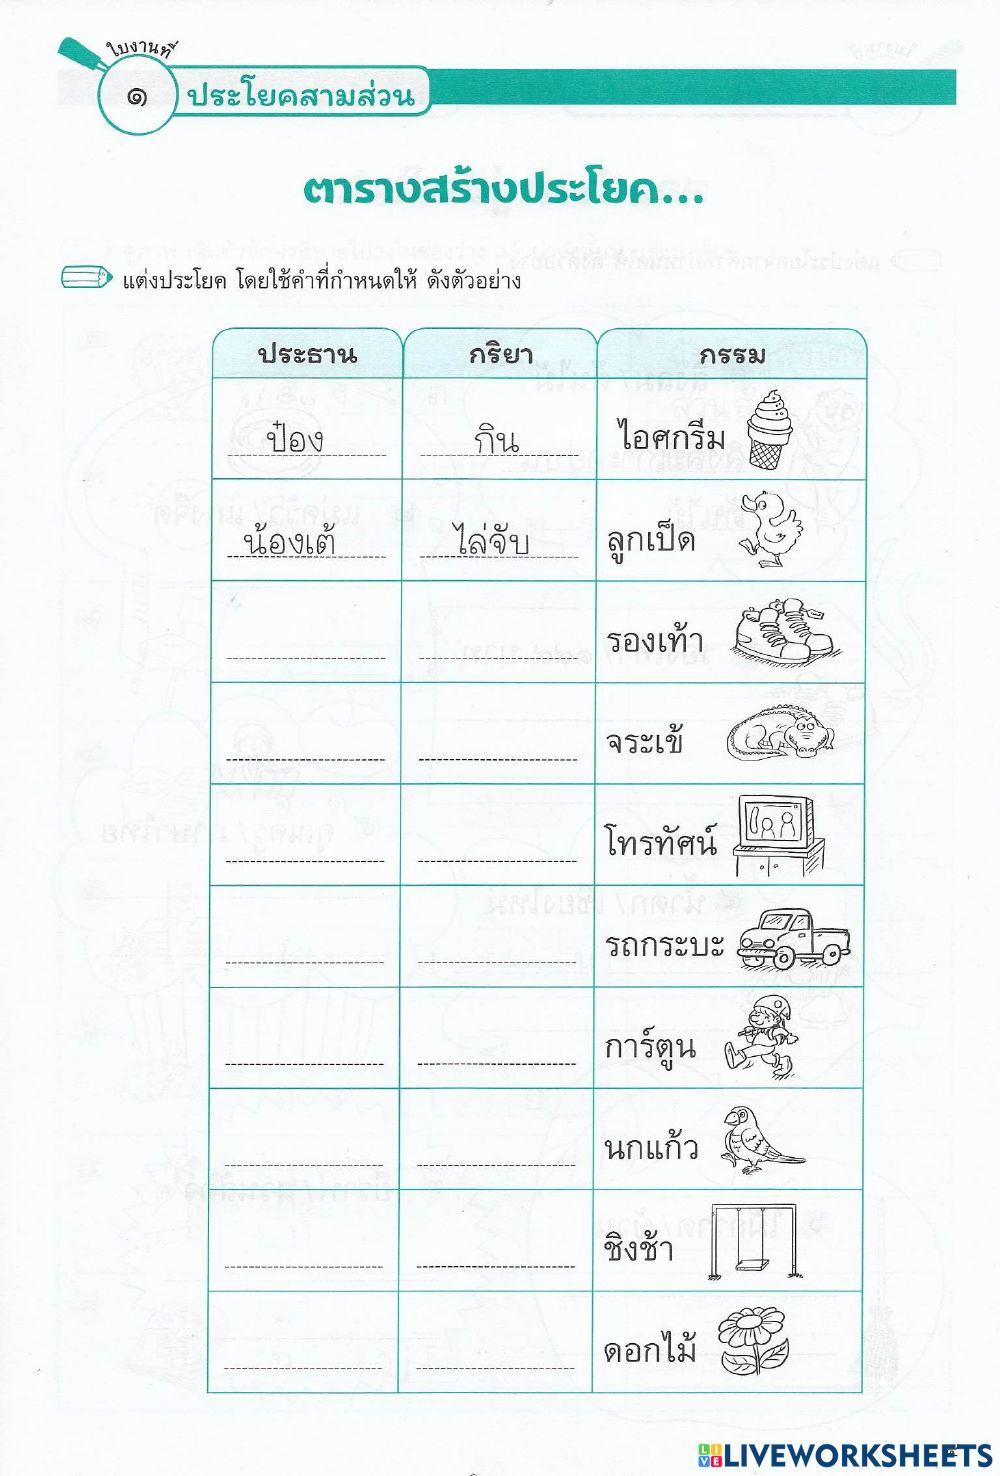 ใบงานที่
๑ ประโยคสามส่วน
ตารางสร้างประโยค...
แต่งประโยค โดยใช้คำที่กำหนดให้ ดังตัวอย่าง
ประธาน กริยา กรรม
ป๋อง กิน ไอศกรีม
น้องเต้ ไล่จับ ลูกเป็ด
รองเท้า
จระเข้
โทรทัศน์
รถกระบะ
การ์ตูน
นกแก้ว
ชิงช้า
ดอกไม้
LIVEWORKSHEETS